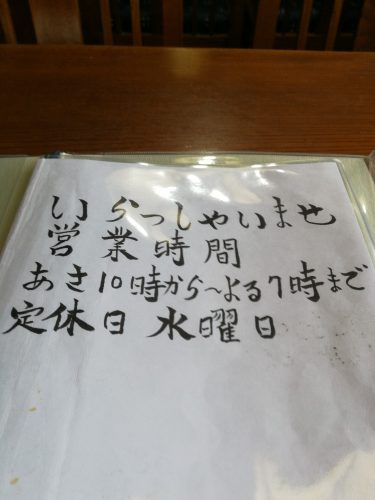 いらっしゃいませ
営業時間
あさ10時から〜よる7時まで
定休日 水曜日